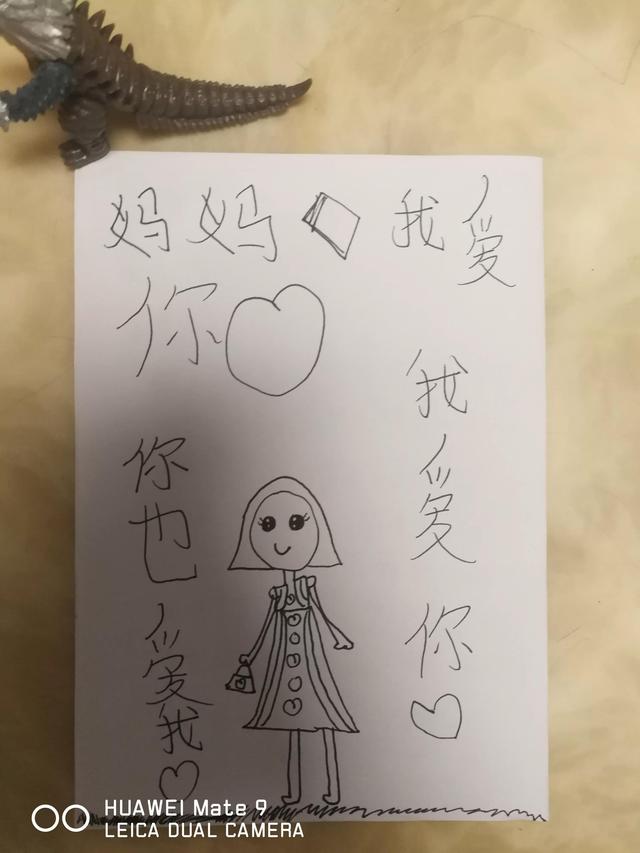 妈妈 我爱
你
我爱你
你也爱我
HUAWEI Mate 9
LEICA DUAL CAMERA